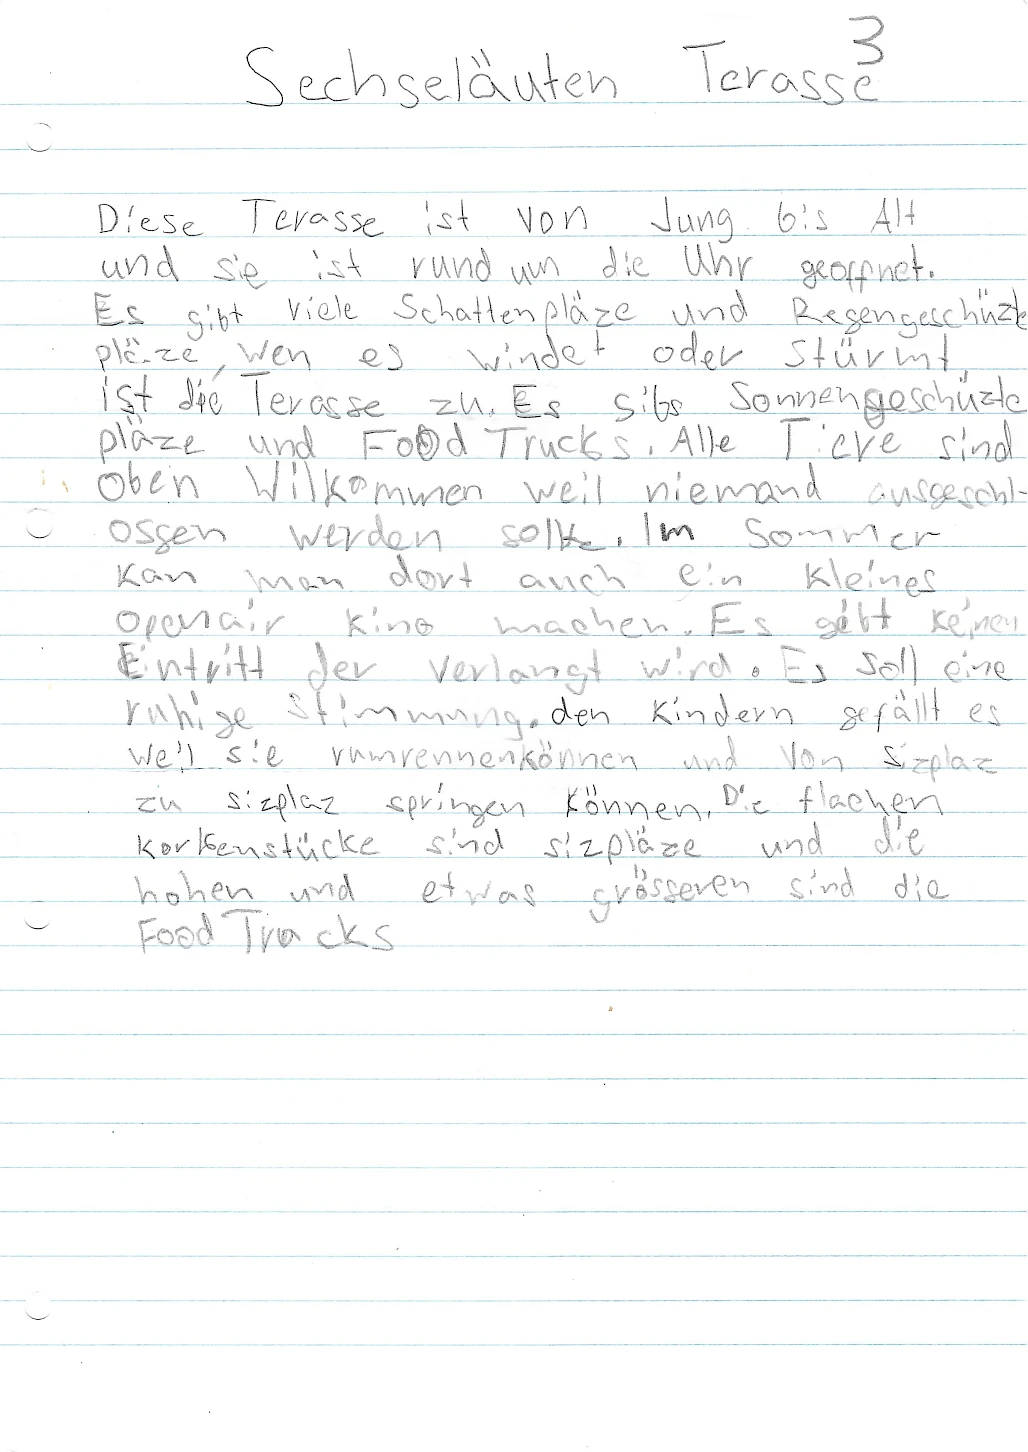 3
Sechseläuten Terasse
Diese Terasse ist von Jung bis Alt
und sie ist rund um die Uhr geöffnet.
Es gibt viele Schattenpläze und Regengeschüzte
pläze, wen es windet oder stürmt
ist die Terasse zu. Es gibs Sonnengeschüzte
pläze und Food Trucks. Alle Tiere sind
oben Wilkommen weil niemand ausgeschl-
ossen werden sollte. Im Sommer
kan man dort auch ein kleines
openair kino machen. Es gibt keinen
Eintritt der verlangt wird. Es soll eine
ruhige Stimmung. den Kindern gefällt es
weil sie rumrennenkönnen und von sizplaz
zu sizplaz springen können. Die flachen
korkenstücke sind sizpläze und die
hohen und etwas grösseren sind die
Food Trucks